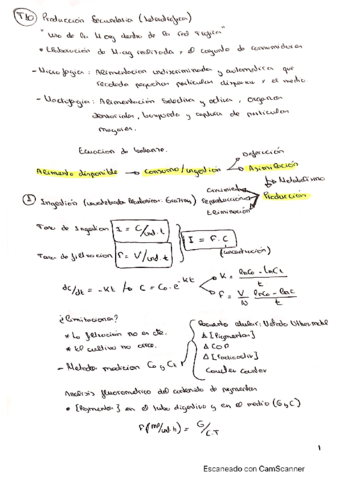 T10 Producción Secundaria (heterótrofica)
"Uso de la M.org dentro de la red Trófica"
* Elaboración de M.org realizada x el conjunto de consumidores
- Microfagia: Alimentación indiscriminada y automática que
recolecta pequeñas partículas dispersas x el medio.
- Macrofagia: Alimentación Selectiva y activa, organismo
búsqueda y captura de partículas
mayores.
Ecuación de balance.
Defecación
Alimento disponible → Consumo/ingestión → Asimilación
Metabolismo
Crecimiento
Reproducción
Eliminación
Producción
① Ingestión
Tasa de Ingestión I = C/ind.t
I = F.C
Tasa de filtración F = V/ind.t
dc/dt = -Kt → C = C₀.e^-kt
K = lnC₀ - lnCt / t
F = V/N lnC₀ - lnCt / t
¿Limitaciones?
* La filtración no es cte.
* El cultivo no crece.
- Métodos medición C₀ y Ct
Recuento celular: Método Utermohl
Δ [Pigmentos]
Δ COP
Δ [Radioactiv]
Coulter counter
Análisis fluorométrico del contenido de pigmentos
* [Pigmentos] en el tubo digestivo y en el medio (G y C)
F (ml/ind.h) = G/C.T
1
Escaneado con CamScanner